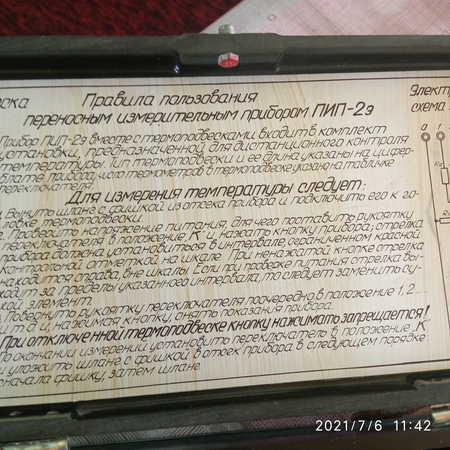 ска
Правила пользования
переносным измерительным прибором ПИП-2э
Прибор ПИП-2э вместе с термоподвесками входит в комплект
установки, предназначенной для дистанционного контроля
температуры. Тип термоподвески и ее длина указаны на цифер-
блате прибора; число термометров в термоподвеске указано на табличке
переключателя.
Для измерения температуры следует:
1. Вынуть шланг с фишкой из отсека прибора и подключить его к го-
ловке термоподвески.
2. Проверить напряжение питания, для чего поставить рукоятку
переключателя в положение „К" и нажать кнопку прибора; стрелка
прибора должна установиться в интервале, ограниченном красной
контрольной отметкой на шкале. При ненажатой кнопке стрелка
находится справа, вне шкалы. Если при проверке питания стрелка вы-
ходит за пределы указанного интервала, то следует заменить су-
хой элемент.
Повернуть рукоятку переключателя поочередно в положение 1, 2....
и т. д. и, нажимая кнопку, снять показания прибора.
При отключенной термоподвеске кнопку нажимать запрещается!
По окончании измерений установить переключатель в положение „К"
и уложить шланг с фишкой в отсек прибора в следующем порядке:
сначала фишку, затем шланг.
Электр
схема
0 1
2021/7/6 11:42